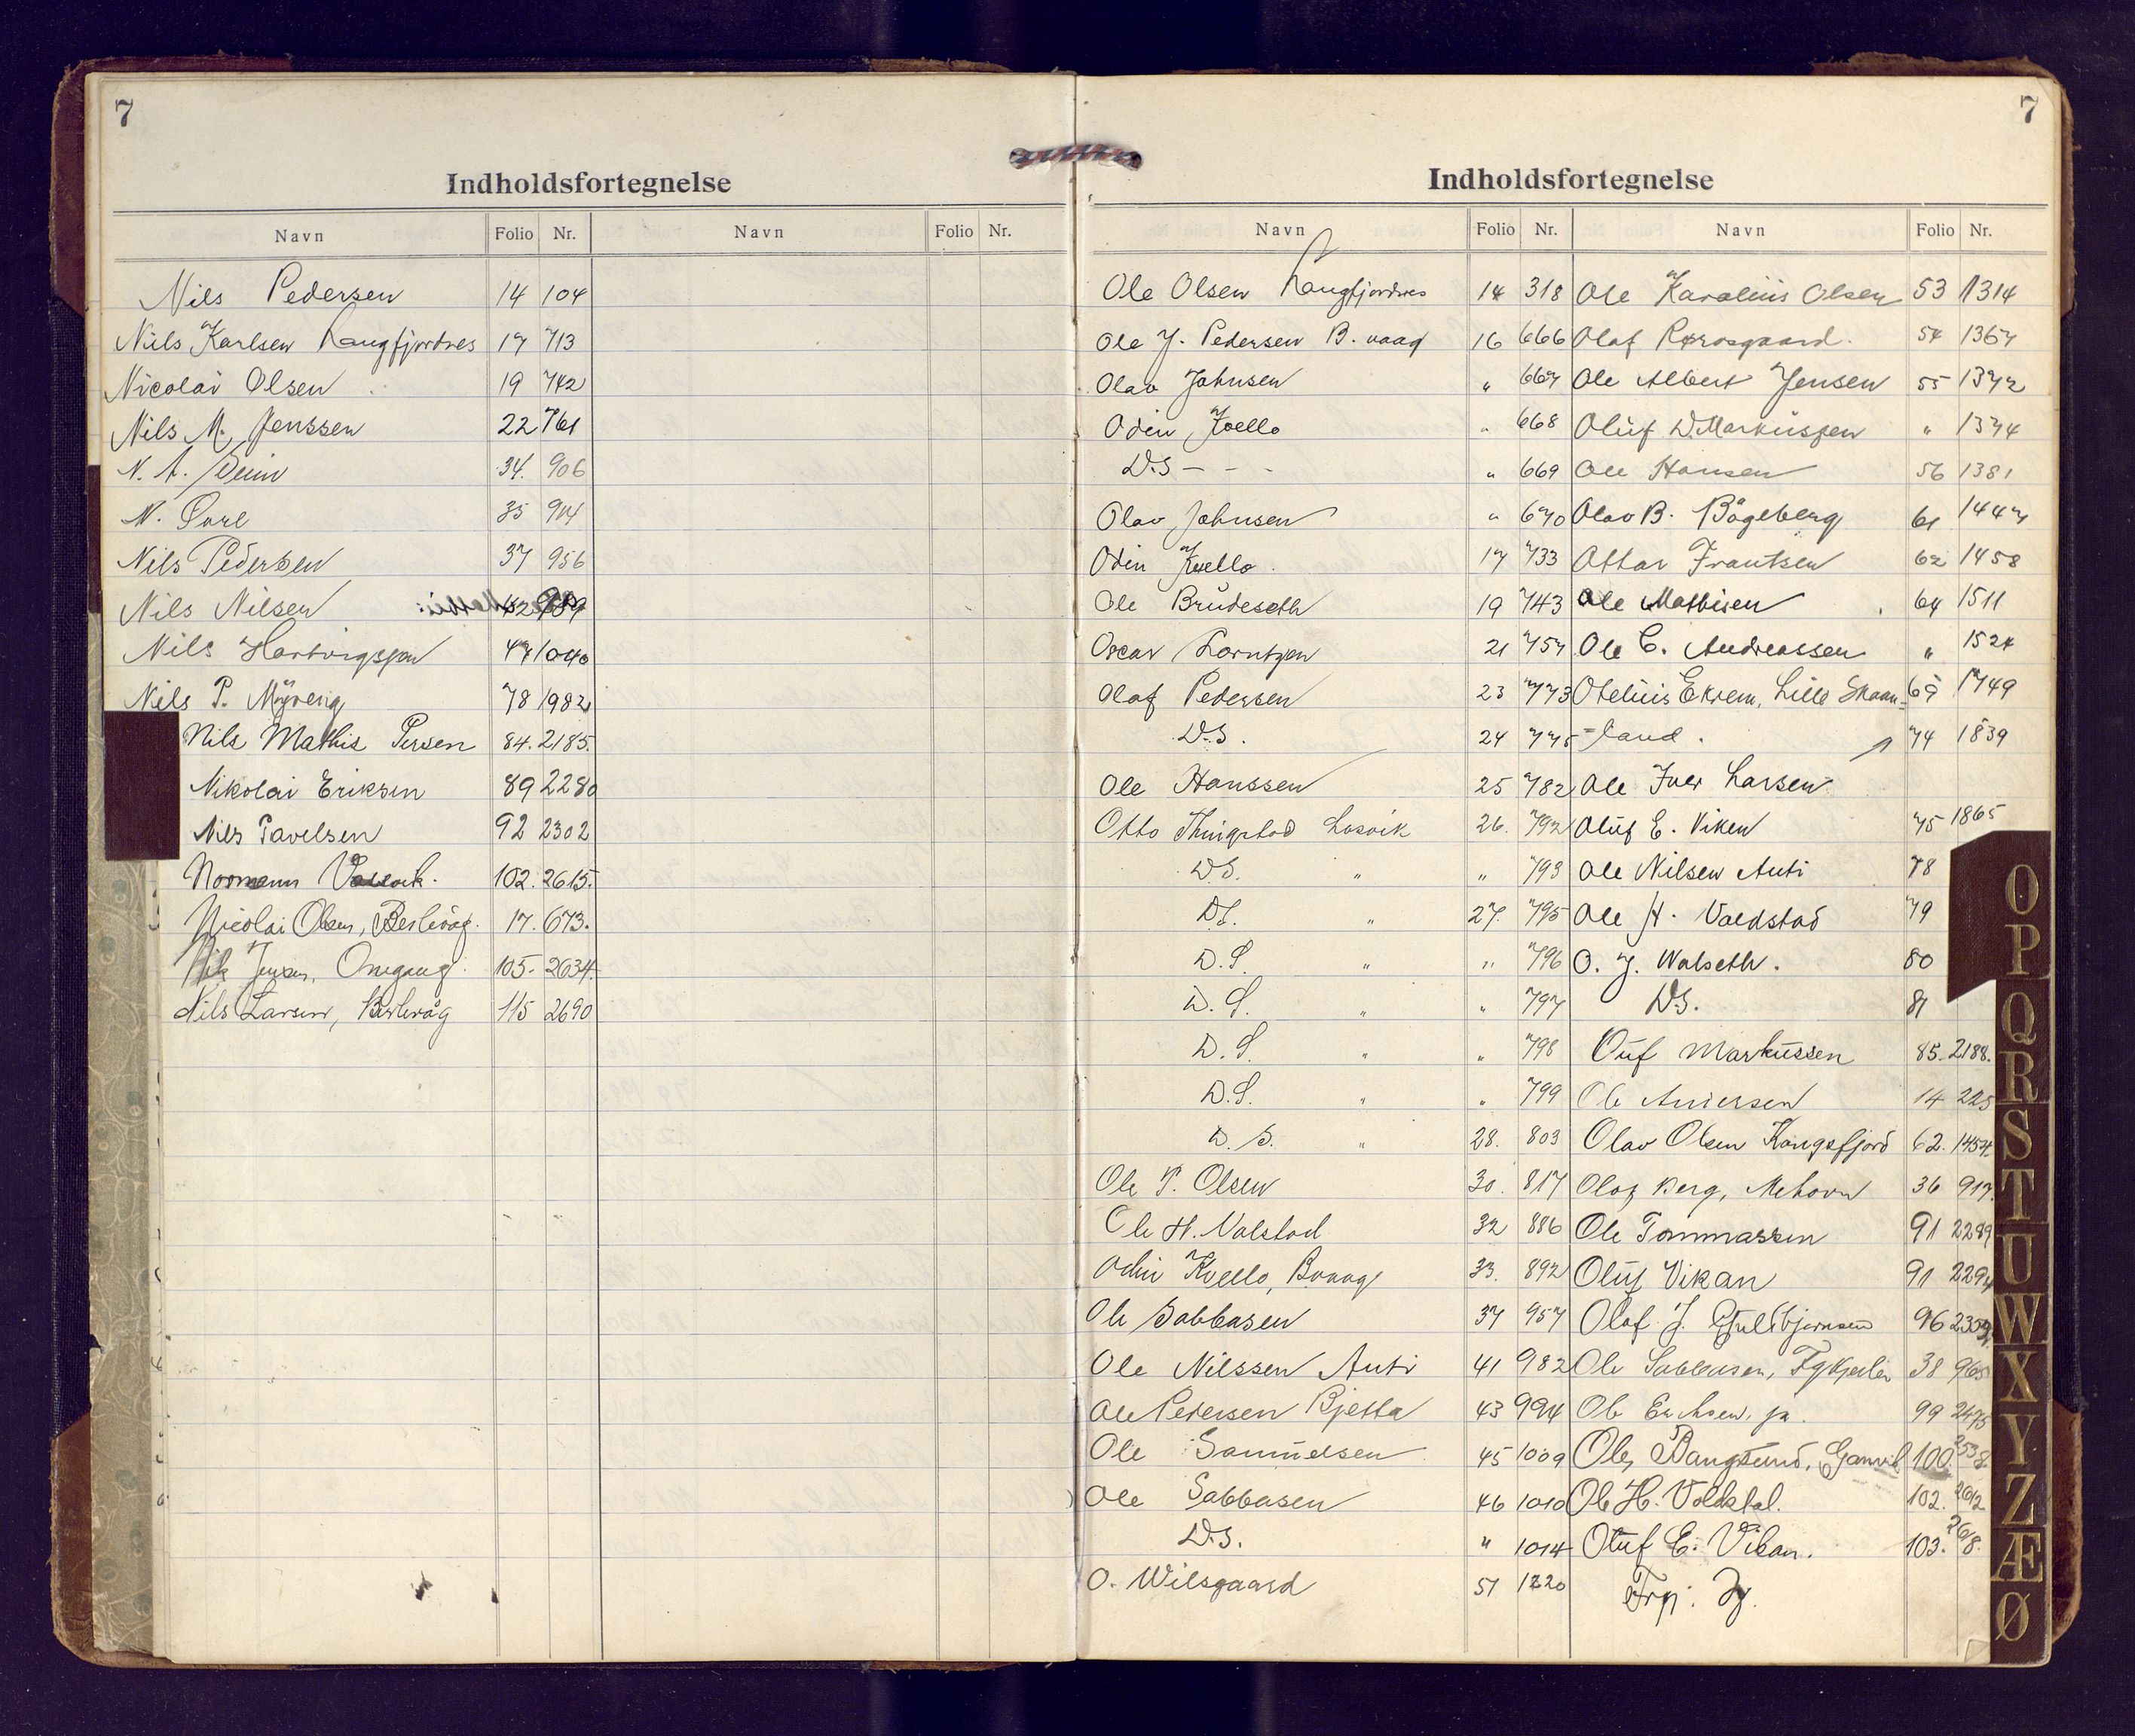 7
Indholdsfortegnelse
Navn Folio Nr. Navn Folio Nr.
Nils Pedersen 14 104
Nils Karlsen Langfjordnes 17 713
Nicolai Olsen 19 742
Nils M. Jenssen 22 761
N. A. 34. 906
N. 35 914
Nils Pedersen 37 956
Nils Nilsen 42 989
Nils Hartvigsen 47 1040
Nils P. Myreng 78 1982
Nils Mathis Persen 84. 2185.
Nikolai Eriksen 89 2280
Nils Pavelsen 92 2302
Normann 102. 2615.
Nicolai Olsen, Berlevåg. 17. 673.
Nils Jensen, Omgang. 105. 2634.
Nils Larsen, Berlevåg 115 2690
7
Indholdsfortegnelse
Navn Folio Nr.
Ole Olsen Langfjordnes 14 318
Ole J. Pedersen B. vaag 16 666
Olav Johnsen " 667
Odin Kvello " 668
D.S - - - " 669
Olav Johnsen " 670
Odin Kvello. 17 733
Ole Brudeseth 19 743
Oscar Lorntzen 21 757
Olaf Pedersen 23 773
D.S. 24 775
Ole Hanssen 25 782
Otto Thingstad Losvik 26. 792
D.S. " " 793
D.S. " 27. 795
D.S. " " 796
D.S. " " 797
D.S. " " 798
D.S. " " 799
D.S. " 28. 803
Ole P. Olsen 30. 817
Ole H. Valstad 32 886
Odin Kvello, Bvaag 33. 892
Ole Sabbasen 37 957
Ole Nilssen Anti 41 982
Ole Petersen Bjetta 43 994
Ole Samuelsen 45 1009
Ole Sabbasen 46 1010
D.S. " 1014
O. Wilsgaard 51 1220
Navn Folio Nr.
Ole Karolius Olsen 53 1314
Olaf Rørosgaard. 54 1367
Ole Albert Jensen 55 1372
Oluf D. Markussen " 1374
Ole Hansen 56 1381
Olav B. Bågeberg 61 1447
Ottar Frantsen 62 1458
Ole Mathisen 64 1511
Ole C. Andreassen " 1524
Otelius Ekrem, Lille Skaan= 69 1749
=land. 74 1839
Ole Iver Larsen
Oluf E. Viken 75 1865
Ole Nilsen Anti 78
Ole H. Valdstad 79
O. J. Walseth. 80
D.S. 81
Oluf Markussen 85. 2188.
Ole Andersen 14 225
Olav Olsen Kongsfjord 62. 1454.
Olaf Berg, Mehavn 36 917.
Ole Tommassen 91 2289
Oluf Vikan 91 2294
Olaf J. Guldbjørnsen 96 2309.
Ole Sabbasen, 38 965
Ole Erichsen, jr. 99 2475
Ole Bangsund, Gamvik 100. 2538.
Ole H. 102. 2612
Oluf E. Vikan. 103. 2618.
O
P
Q
R
S
T
U
W
X
Y
Z
Æ
Ø